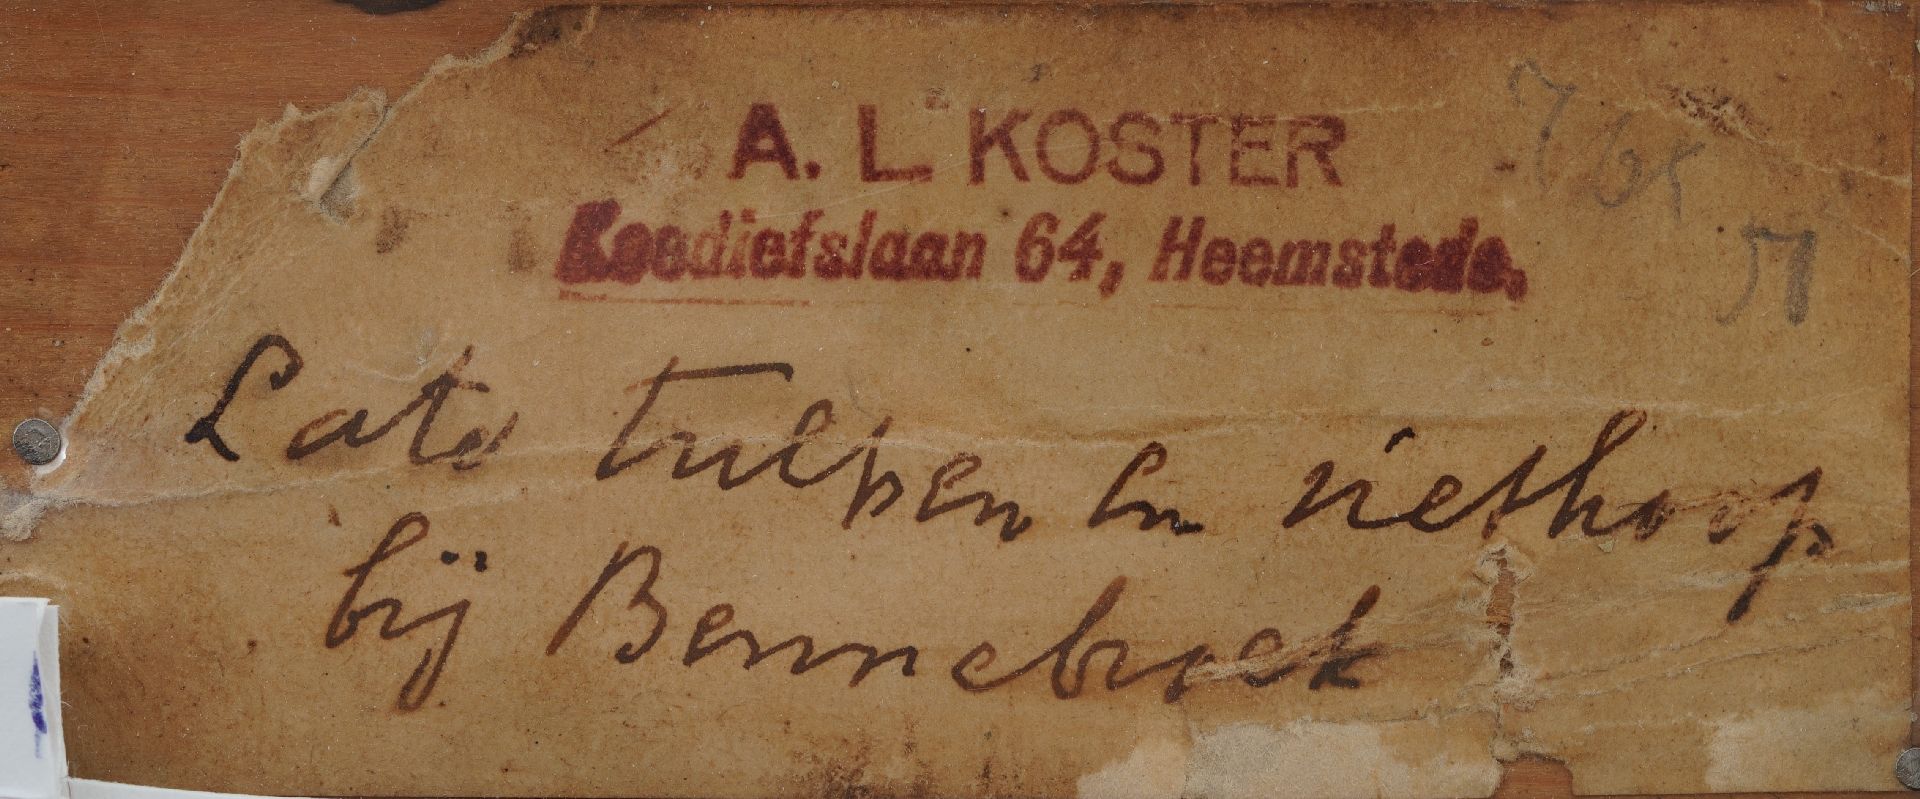 A. L. KOSTER
Koediefslaan 64, Heemstede.
765
51
Late tulpen en riethoop
bij Bennebroek